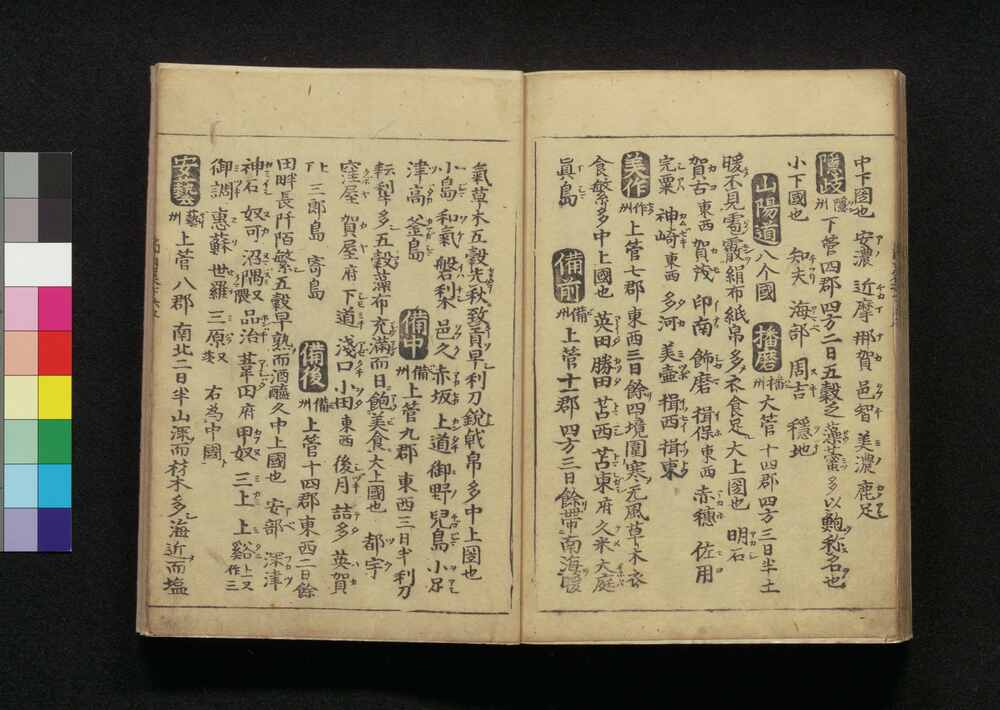 中下國也 安濃 近摩 那賀 邑智 美濃 鹿足
隱岐 隱州 下管四郡四方二日五穀乏藻蜜多以鮑称名也
小下國也 知夫 海部 周吉 穩地
山陽道 八个國 播磨 播州 大管十四郡四方三日半土
暖丕見雹霰絹布紙帛多衣食足大上國也 明石
賀古東西 賀茂 印南 飾磨 揖保東西 赤穗 佐用
完粟 神崎東西 多河 美壷 揖西 揖東
美作 作州 上管七郡東西三日餘四境圍寒无風草木衣
食繁多中上國也 英田 勝田 苫西 苫東府 久米 大庭
眞島 備前 備州 上管十一郡四方三日餘帶南海暖
氣草木五穀先秋致貢早利刀銳戟帛多中上國也
小島 和氣 磐梨 邑久 赤坂 上道 御野 兒島 小足
津高 釜島 備中 備州 上管九郡東西三日半利刀
耘犁多五穀藻布充滿而日飽美食大上國也 都宇
窪屋 賀屋府 下道 淺口 小田東西 後月 詰多 英賀
下 三郎島 寄島 備後 備州 上管十四郡東西二日餘
田畔長阡陌繁五穀早熟而酒醯久中上國也 安部 深津
神石 奴可 沼隅又隈 品治 葦田府 甲奴 三上 上谿上又作三
御調 惠蘇 世羅 三原 右為中國
安藝 藝州 上管八郡南北二日半山深而材木多海近而塩